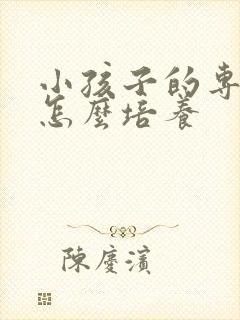 小孩子的專
怎麼培養
陳慶濱